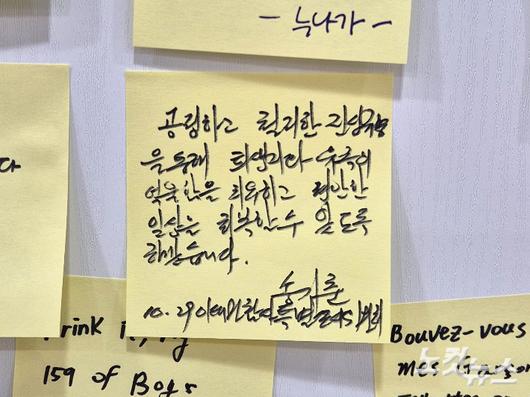 - 누나가 -
다
공정하고 철저한 진상규명
을 통해 희생자와 유족의
억울함을 위로하고 편안한
일상을 회복할 수 있도록
하겠습니다.
송기춘
10.29이태원참사특별조사위원회
159 of Boys
Bouvez-vous
mes
노컷뉴스